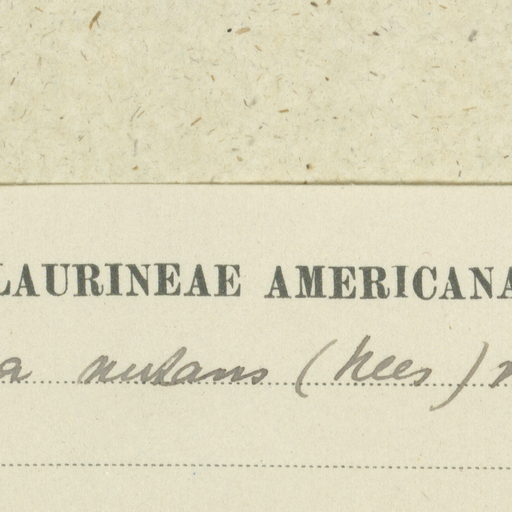 LAURINEAE AMERICANA
a nutans (Nees)